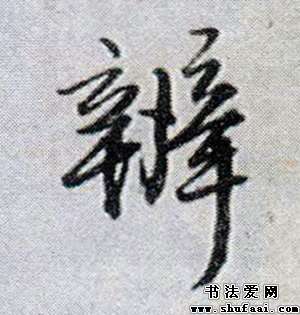 辨
书法爱网
www.shufaai.com